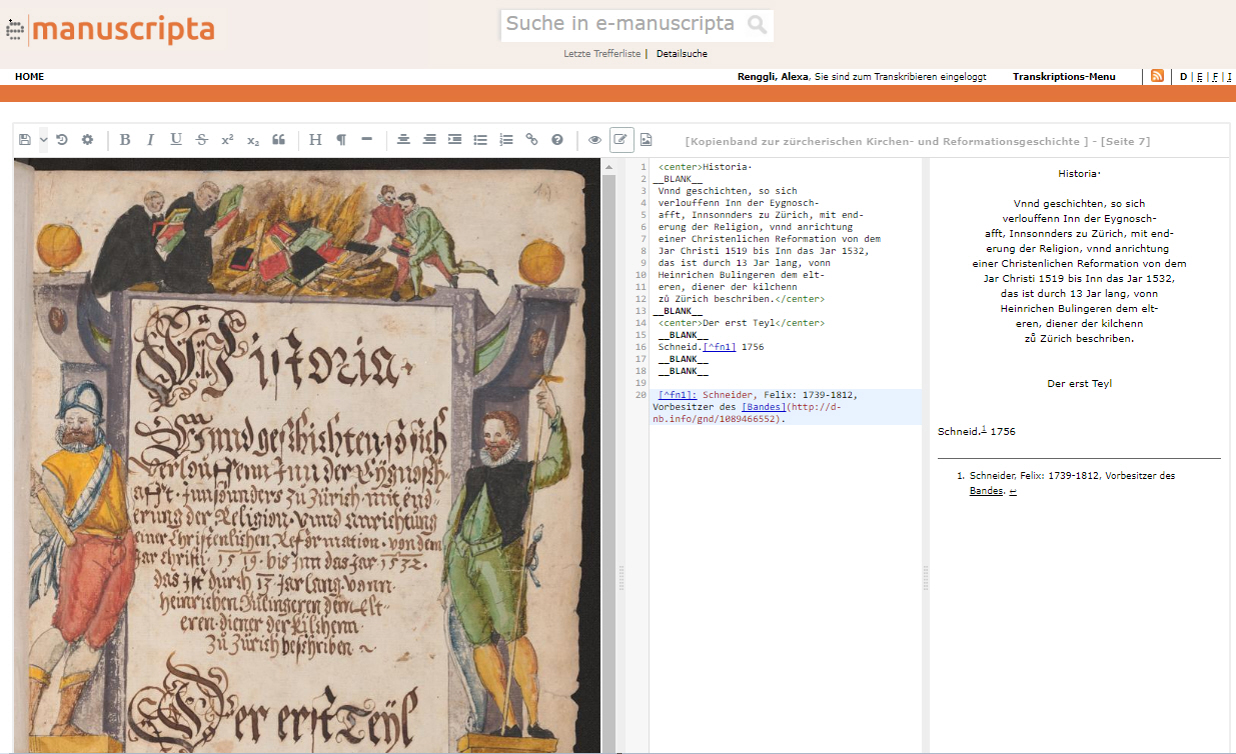 manuscripta
Suche in e-manuscripta
Letzte Trefferliste | Detailsuche
HOME
Renggli, Alexa, Sie sind zum Transkribieren eingeloggt
Transkriptions-Menu
D | E | F | I
[Kopienband zur zürcherischen Kirchen- und Reformationsgeschichte ] - [Seite 7]
Historia·
Vnnd geschichten, so sich
verlouffenn Inn der Eygnosch-
afft · Innsonnders zu Zürich, mit end-
erung der Religion · vnnd anrichtung
einer Christenlichen Reformation · von dem
Jar Christi · 1519 · bis Inn das Jar 1532 ·
das ist durch 13 Jar lang · vonn
Heinrichen Bulingeren dem elt-
eren · diener der kilchenn
zů Zürich beschriben ~
Der erst Teyl
1 <center>Historia·
2 __BLANK__
3 Vnnd geschichten, so sich
4 verlouffenn Inn der Eygnosch-
5 afft, Innsonnders zu Zürich, mit end-
6 erung der Religion, vnnd anrichtung
7 einer Christenlichen Reformation von dem
8 Jar Christi 1519 bis Inn das Jar 1532,
9 das ist durch 13 Jar lang, vonn
10 Heinrichen Bulingeren dem elt-
11 eren, diener der kilchenn
12 zů Zürich beschriben.</center>
13 __BLANK__
14 <center>Der erst Teyl</center>
15 __BLANK__
16 Schneid.[^fn1] 1756
17 __BLANK__
18 __BLANK__
19
20 [^fn1]: Schneider, Felix: 1739-1812,
Vorbesitzer des [Bandes](http://d-
nb.info/gnd/1089466552).
Historia·
Vnnd geschichten, so sich
verlouffenn Inn der Eygnosch-
afft, Innsonnders zu Zürich, mit end-
erung der Religion, vnnd anrichtung
einer Christenlichen Reformation von dem
Jar Christi 1519 bis Inn das Jar 1532,
das ist durch 13 Jar lang, vonn
Heinrichen Bulingeren dem elt-
eren, diener der kilchenn
zů Zürich beschriben.
Der erst Teyl
Schneid.1 1756
1. Schneider, Felix: 1739-1812, Vorbesitzer des
Bandes. ↩